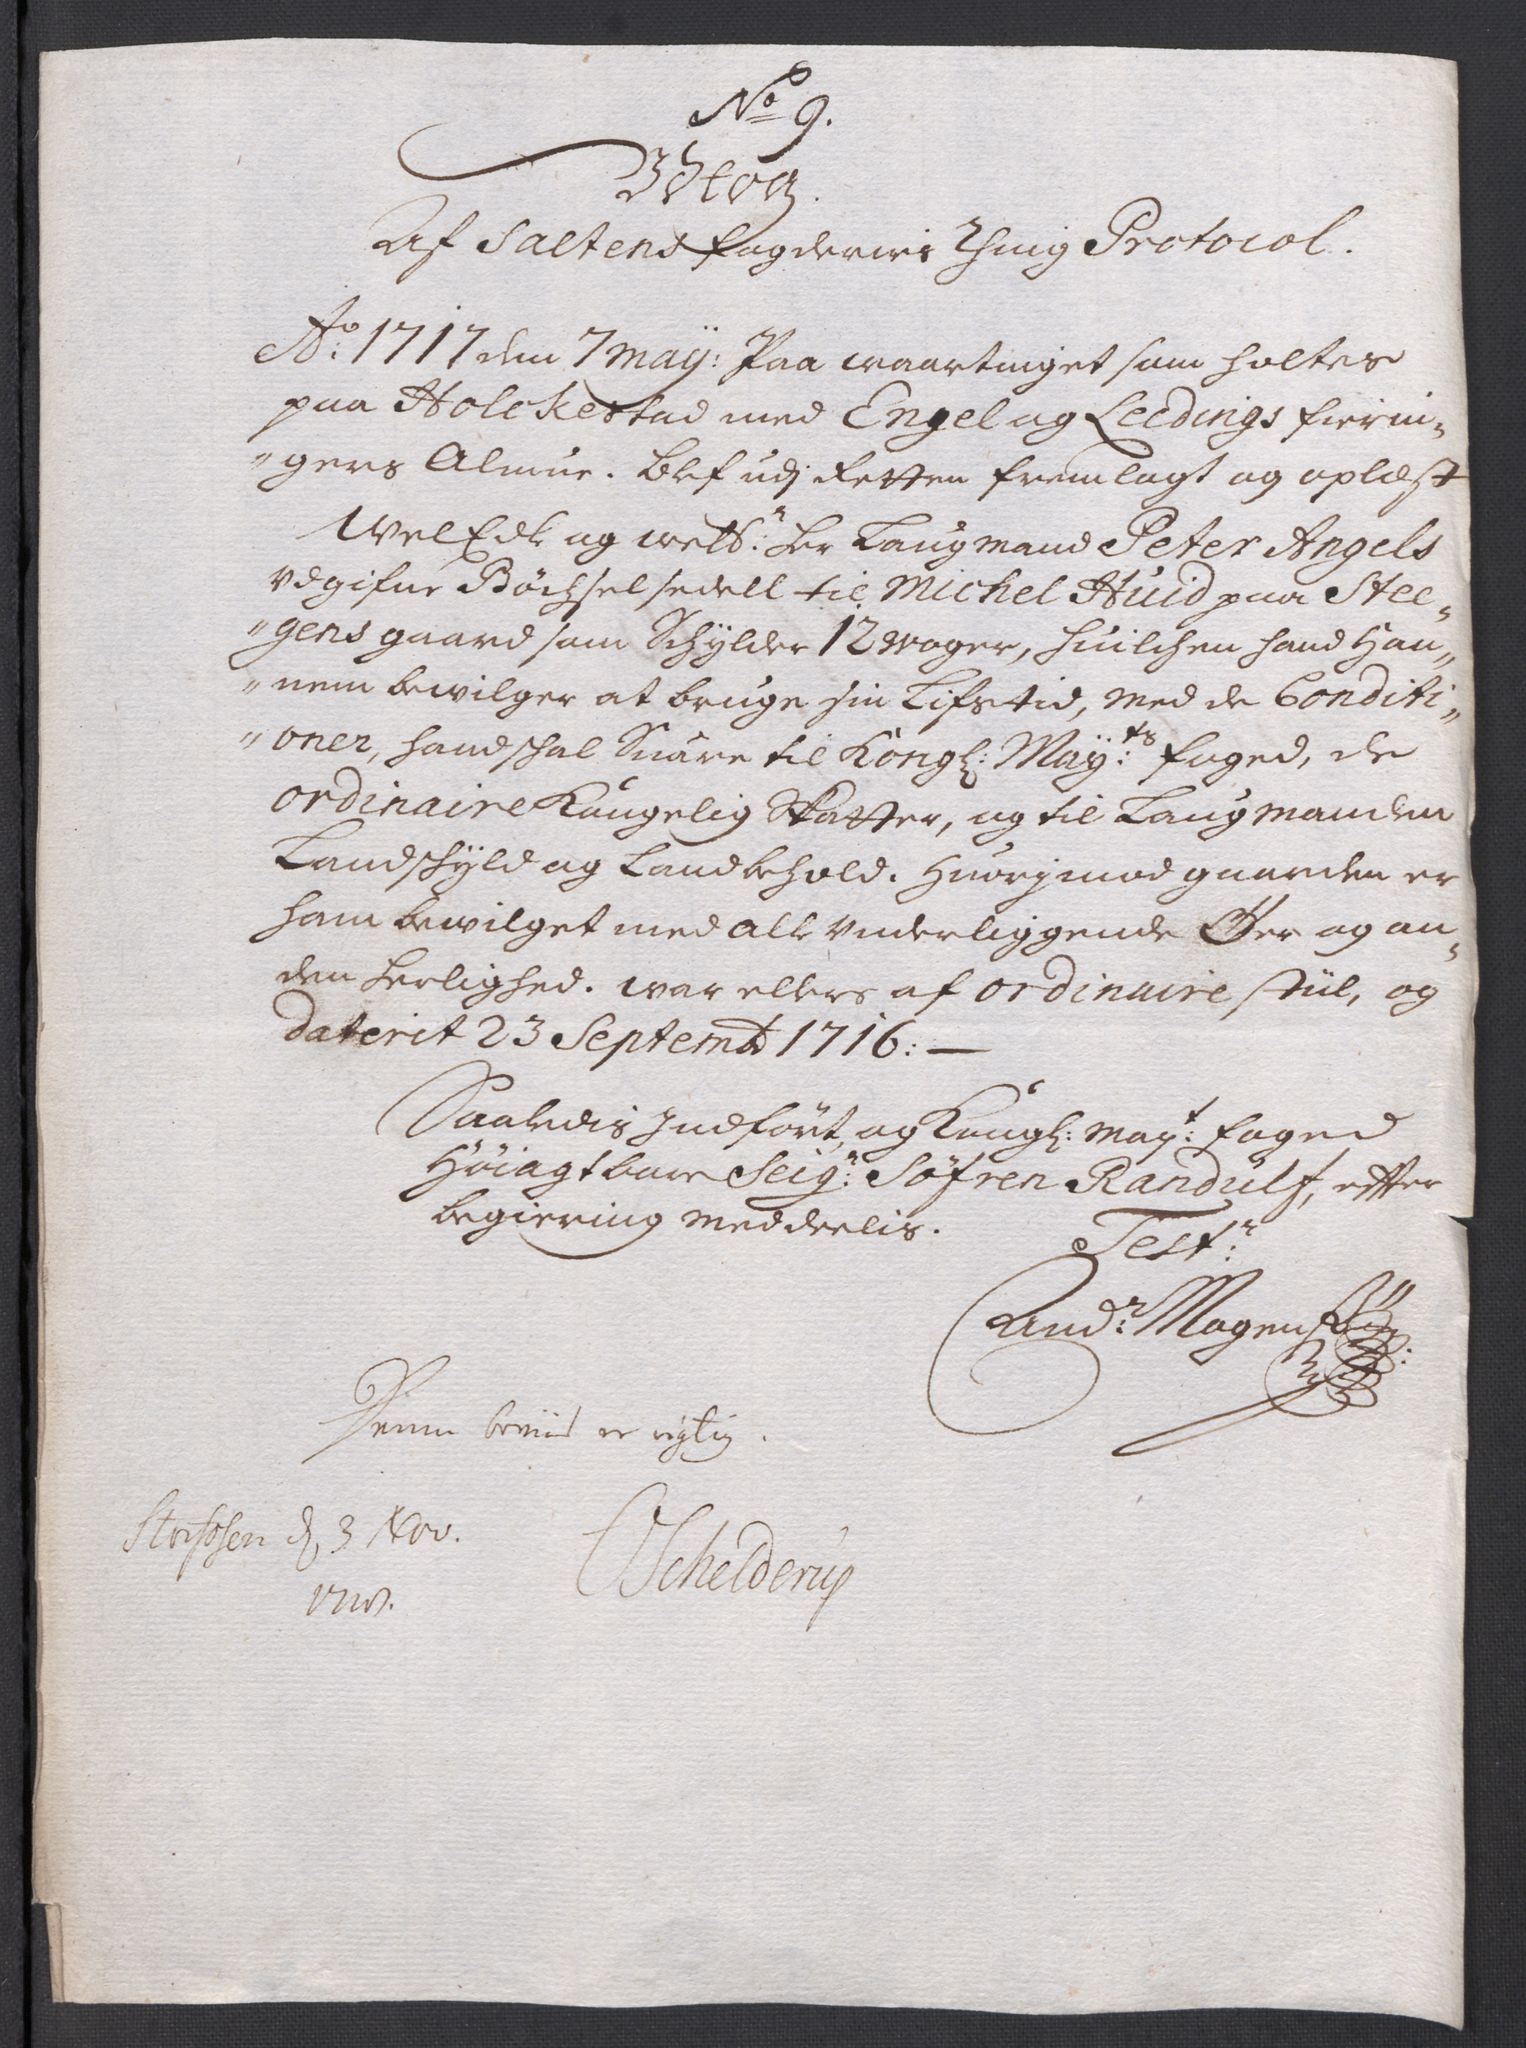 No 9.
Udtog
Af Saltens fogderies Thing Protocol.
Ao: 1717 den 7 may: Paa waartinget som holtes
paa Holckestad med Engel og Leedings fierin-
"gers Almue. blef udj Retten fremlagt og oplæst
WelEdle og welb:n her Laugmand Peter Angels
vdgifne Böchselsedell til Michel Huid paa Stee-
"gens gaard som Schylder 12 woger, huilchen hand Han-
"nem bewilger at bruge sin Lifstid, med de Conditi-
"oner, hand schal Suare til Kongl: Mäy:ts foged, de
ordinaire Kongelig Skatter, og til Laugmanden
Landschÿld og Landbehold. Huorjmod gaarden er
ham bewilget med alle vnderliggende Øer og an-
den herlighed. war ellers af ordinaire stiil, og
daterit 23 Septembr 1716: —
Saaledis Indfört, og Kongl: may:t foged
Höiagtbare Seig:r Söfren Randulf, effter
begiering meddeelis.
Test:r
And:r Mogensen
Denne beviis er rigtig.
d 3 Nov.
Schelderup